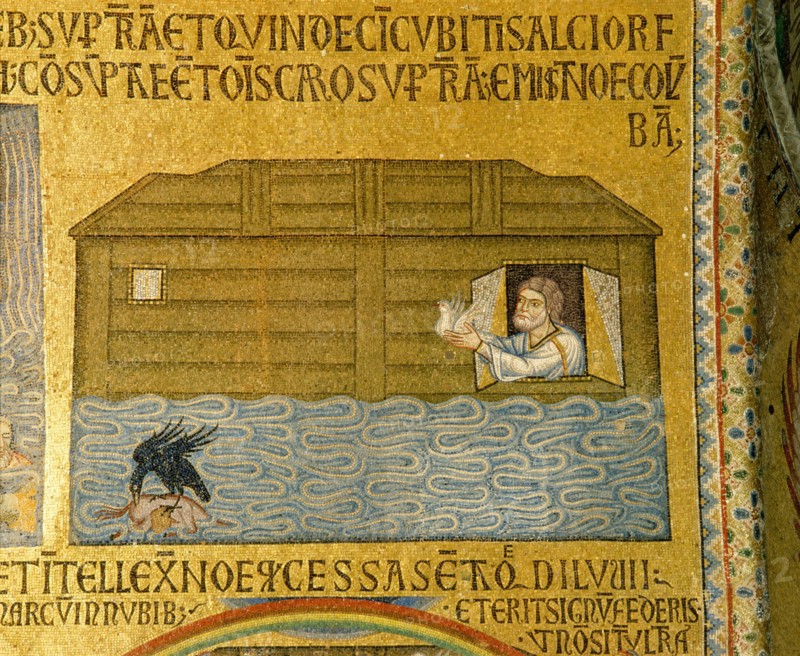 EB; SVꝐ T̄RĀ ET QVINDECĪ CVBITIS ALCIOR F
CŌSV̄PTA E ĒT OĪS CARO SVꝐ T̄RĀ; EMISIT NOE COLV̄
BĀ;
ET ĪTELLEX̄ NOE Q̇ CESSASĒT AQͤ DILVVII:
ARCV̄ IN NVBIB;
ET ERIT SIGNV̄ FEDERIS
VT NŌ SIT VLTRA